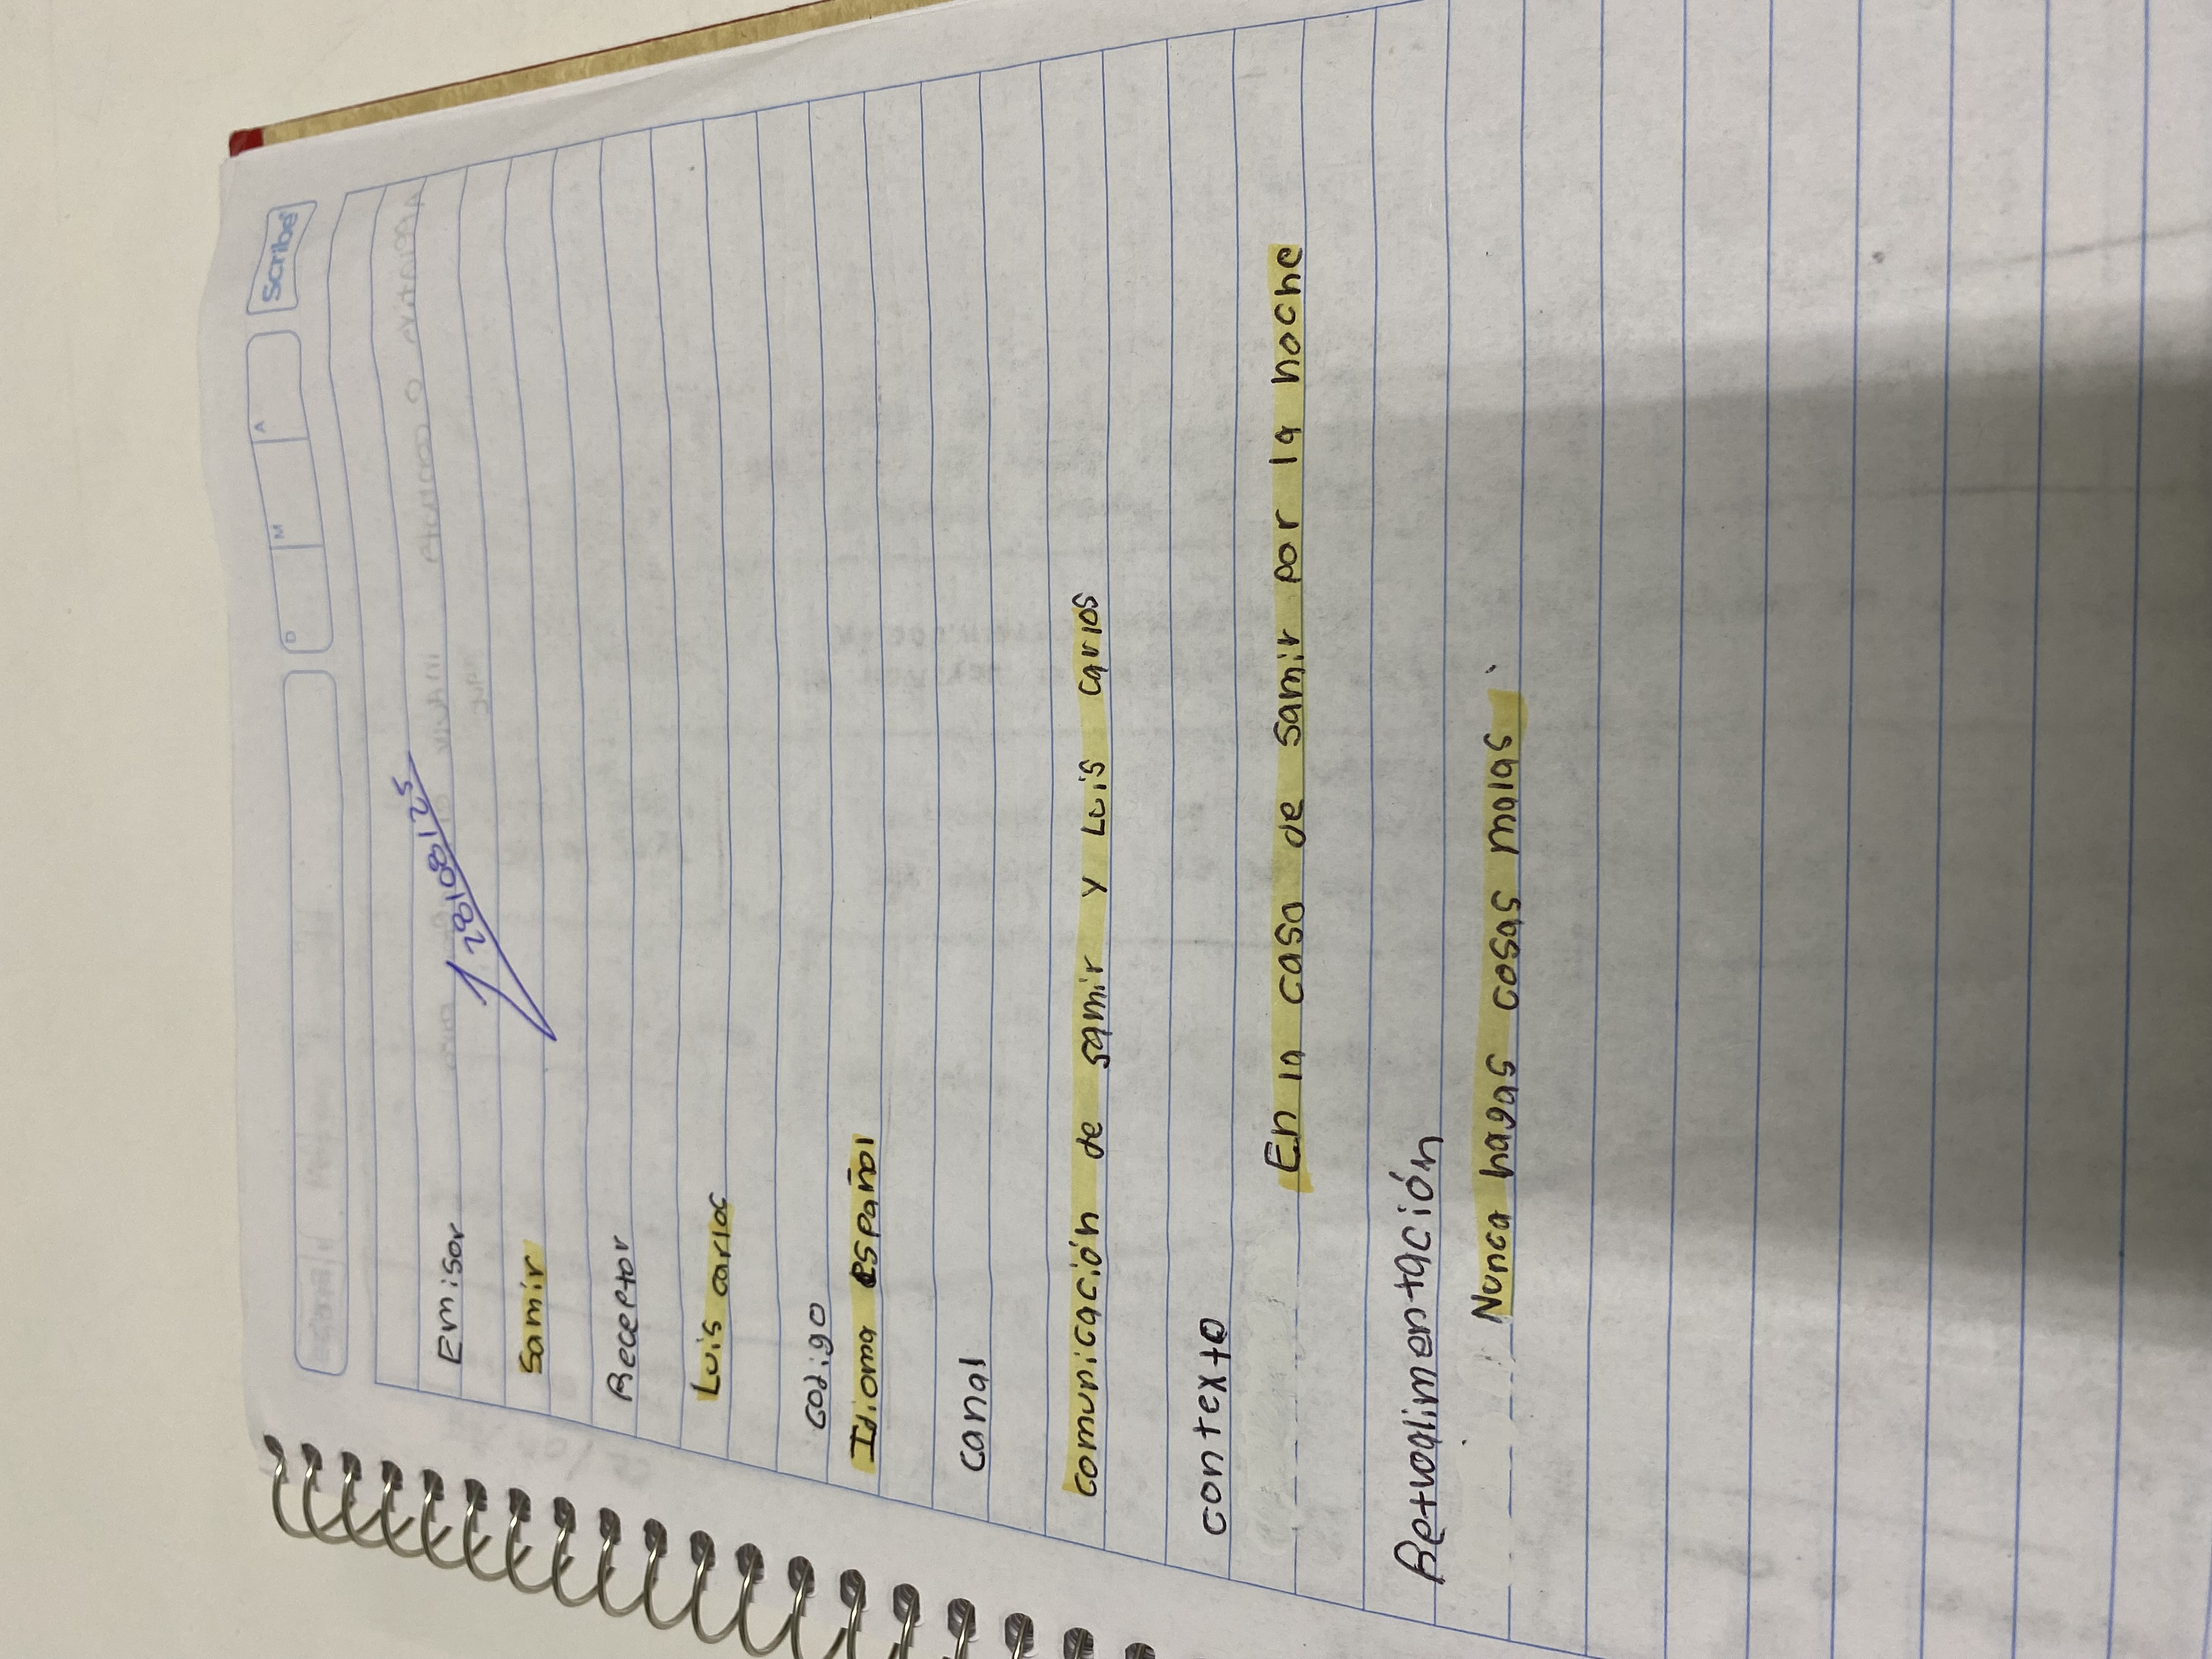 D M A Scribe
28/08/25
Emisor
Samir
Receptor
Luis carlos
codigo
Idioma español
Canal
comunicación de samir y Luis carlos
contexto
En la casa de samir por la noche
Retroalimentación
Nunca hagas cosas malas.